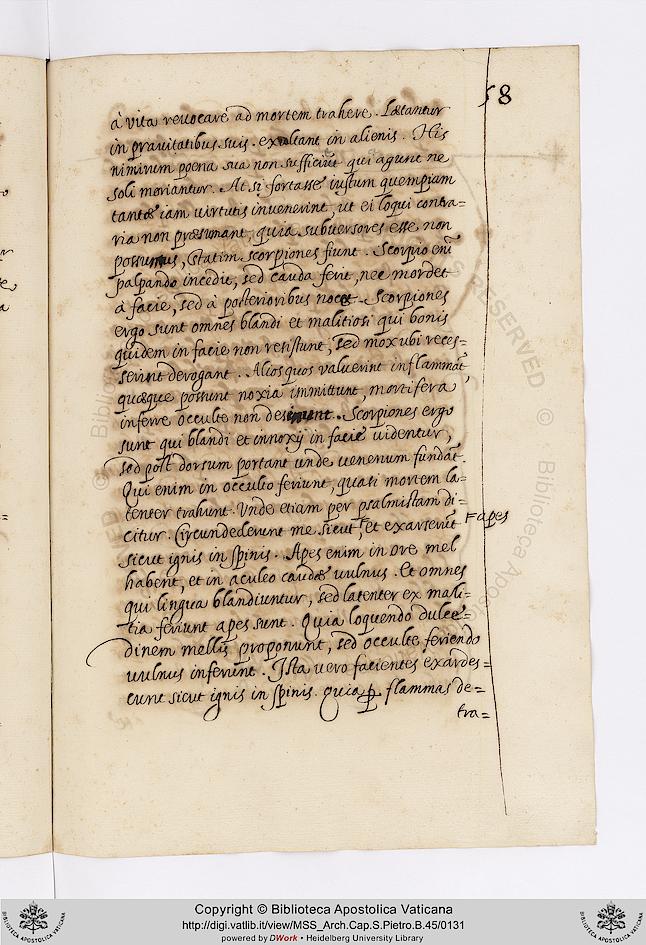 58
à vita revocare ad mortem trahere. Lætantur
in pravitatibus suis. exultant in alienis. His
nimirum poena sua non sufficiūt qui agunt ne
soli moriantur. At si fortasse iustum quempiam
tantæ iam virtutis invenerint, ut ei loqui contra=
ria non præsumant, quia subversores esse non
possunt, statim scorpiones fiunt. Scorpio enī
palpando incedit, sed cauda ferit, nec mordet
à facie, sed à posterioribus nocet. Scorpiones
ergo sunt omnes blandi et malitiosi qui bonis
quidem in facie non resistunt, sed mox ubi reces=
serint derogant. Alios quos valuerint inflammāt,
quæque possunt noxia immittunt, mortifera
inferre occulte non desinunt. Scorpiones ergo
sunt qui blandi et innoxij in facie videntur,
sed post dorsum portant unde venenum fundāt.
Qui enim in occulto feriunt, quasi mortem la=
tenter trahunt. Unde etiam per psalmistam di=
citur. Circundederunt me sicut ⊢, et exarserūt ⊢ apes
sicut ignis in spinis. Apes enim in ore mel
habent, et in aculeo caudæ vulnus. Et omnes
qui lingua blandiuntur, sed latenter ex mali=
tia feriunt apes sunt. Quia loquendo dulce=
dinem mellis proponunt, sed occulte feriendo
vulnus inferunt. Ista vero facientes exardes=
cunt sicut ignis in spinis. Quia ꝑ flammas de=
tra=
© Biblioteca Apostolica Vaticana
Copyright © Biblioteca Apostolica Vaticana
http://digi.vatlib.it/view/MSS_Arch.Cap.S.Pietro.B.45/0131
powered by DWork • Heidelberg University Library